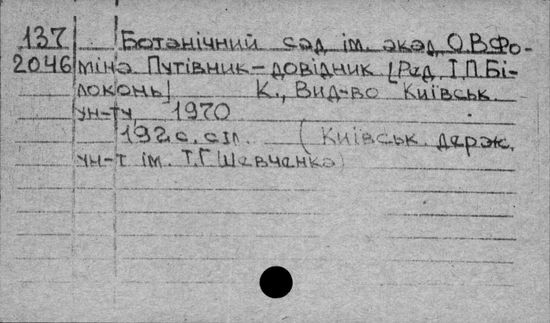 137 Ботанічний сад ім. акад. О.В.Фо-
2046 міна Путівник-довідник [Ред. І.П.Бі-
локонь] К., Вид-во Київськ.
ун-ту, 1970
192 с. сіл. (Київськ. держ.
ун-т ім. Т.Г.Шевченка)